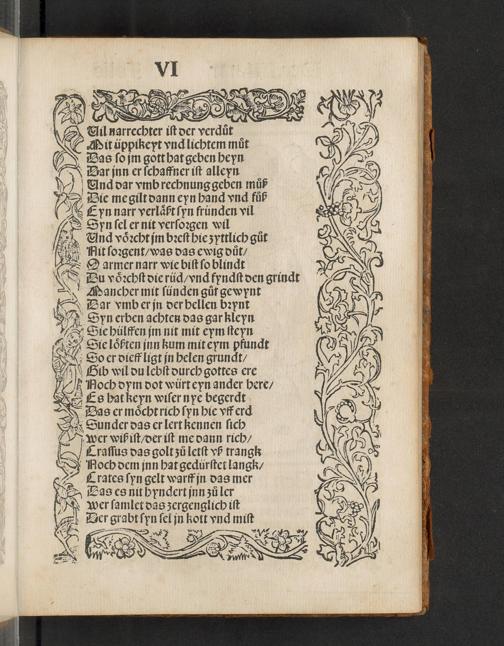 VI
Vil narrechter ist der verdůt
Mit üppikeyt vnd lichtem můt
Das so jm gott hat geben heyn
Dar jnn er schaffner ist alleyn
Vnd dar vmb rechnung geben můß
Die me gilt dann eyn hand vnd fůß
Eyn narr verlåßt syn fründen vil
Syn sel er nit versorgen wil
Vnd vörcht jm brest hie zyttlich gůt
Nit sorgent/was das ewig důt/
O armer narr wie bist so blindt
Du vörchst die rüd/vnd fyndst den grindt
Mancher mit sünden gůt gewynt
Dar vmb er jn der hellen brynt
Syn erben achten das gar kleyn
Sie hülffen jm nit mit eym steyn
Sie lößten jnn kum mit eym pfundt
So er dieff ligt jn helen grundt/
Gib wil du lebst durch gottes ere
Noch dym dot würt eyn ander here/
Es hat keyn wiser nye begerdt
Das er möcht rich syn hie vff erd
Sunder das er lert kennen sich
wer wiß ist/der ist me dann rich/
Crassus das golt zů letst vß trangk
Noch dem jnn hat gedürstet langk/
Crates syn gelt warff jn das mer
Das es nit hyndert jnn zů ler
wer samlet das zergenglich ist
Der grabt syn sel jn kott vnd mist